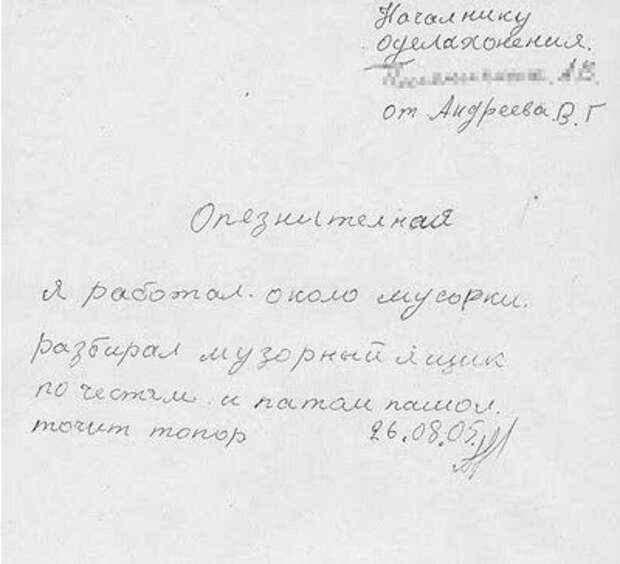 Началнику
Оделахонения.
А.В.
от Андреева.В.Г
Опязнителная
я работал. около мусорки.
разбирал музорный ящик
по честям. и патам пашол.
точит топор 26.08.05.